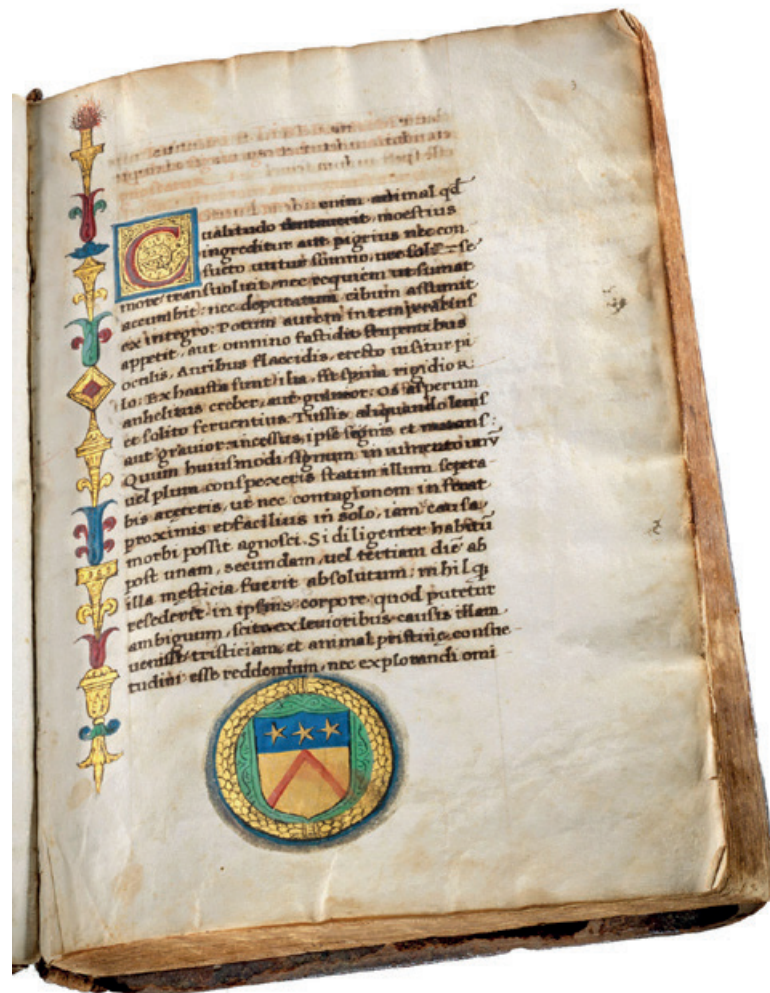 enim animal qđ
C ualitudo temtauerit, moestius
ingreditur aut pigrius nec con
sueto utitur somno, nec sol& se
more transuoluit, nec requiem ut sumat
accumbit: nec deputatum cibum assumit
ex integro: Potum autem intemperatius
appetit, aut omnino fastidit stupentibus
oculis, Auribus flaccidis, erecto uisitur pi
lo: Exhausta sunt ilia, spina rigidior
anhelitus creber, aut grauior: Os asperum
et solito feruentius: Tussis aliquando lenis
aut grauior: incessus, ipse segnis et nutans:
Quum huiusmodi signum in iumento unū
uel plura conspexeris statim illum sepera
bis aceteris, ut nec contagionem inferat
proximis et facilius in solo, iam causa,
morbi possit agnosci. Si diligenter habitū
post unam, secundam, uel tertiam diē ab
illa mesticia fuerit absolutum: nihil q;
resederit in ipsius corpore quod putetur
ambiguum, scito ex leuioribus causis illam
uenisse tristiciam, et animal pristinę consue
tudini esse reddendum, nec explorandi omi